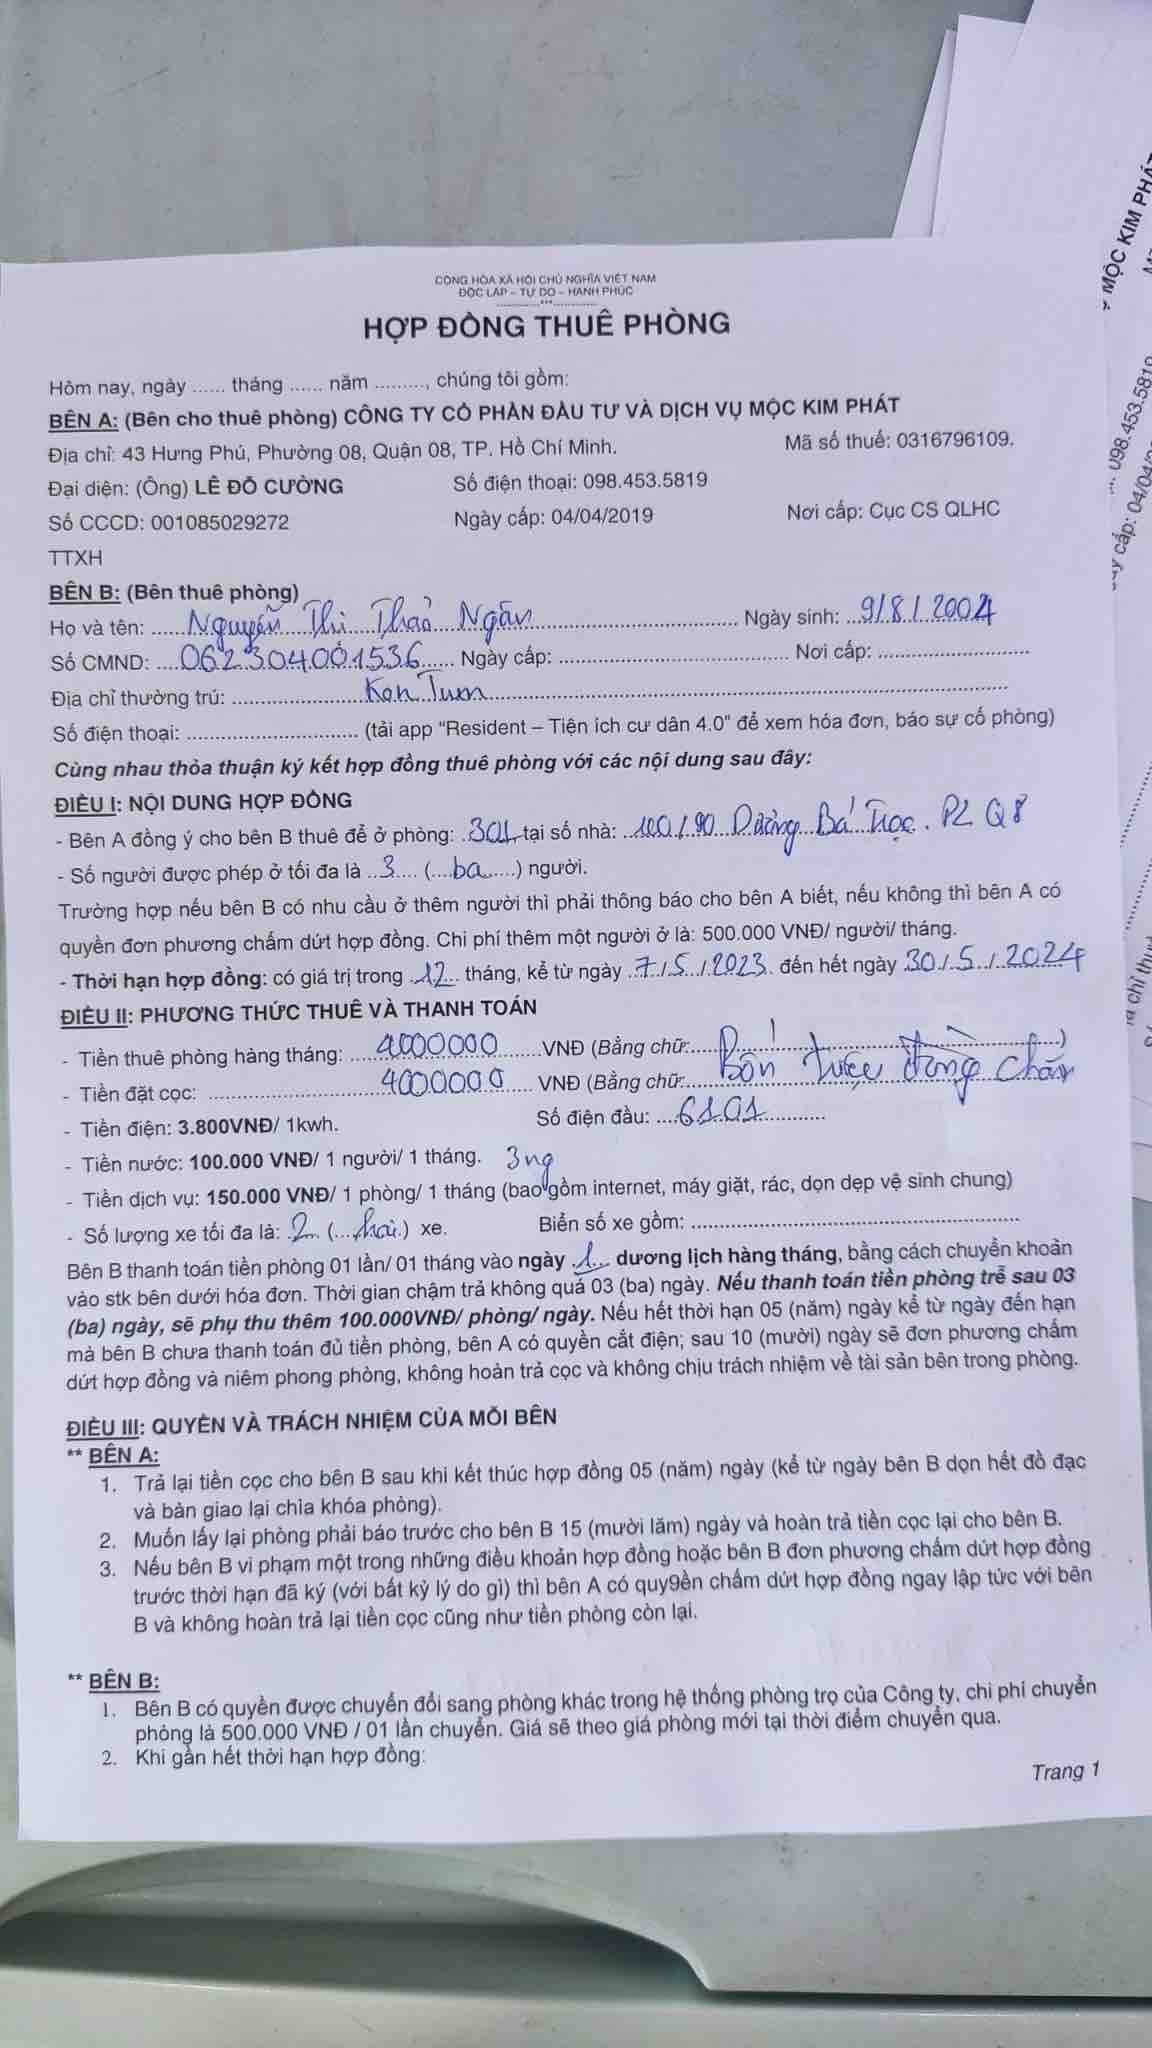 CỘNG HÒA XÃ HỘI CHỦ NGHĨA VIỆT NAM
ĐỘC LẬP – TỰ DO – HẠNH PHÚC
HỢP ĐỒNG THUÊ PHÒNG
Hôm nay, ngày ...... tháng ...... năm ........., chúng tôi gồm:
BÊN A: (Bên cho thuê phòng) CÔNG TY CỔ PHẦN ĐẦU TƯ VÀ DỊCH VỤ MỘC KIM PHÁT
Địa chỉ: 43 Hưng Phú, Phường 08, Quận 08, TP. Hồ Chí Minh. Mã số thuế: 0316796109.
Đại diện: (Ông) LÊ ĐỖ CƯỜNG Số điện thoại: 098.453.5819
Số CCCD: 001085029272 Ngày cấp: 04/04/2019 Nơi cấp: Cục CS QLHC
TTXH
BÊN B: (Bên thuê phòng)
Họ và tên: Nguyễn Thị Thảo Ngân Ngày sinh: 9/8/2004
Số CMND: 062304001536 Ngày cấp: Nơi cấp:
Địa chỉ thường trú: Kon Tum
Số điện thoại: (tải app “Resident – Tiện ích cư dân 4.0” để xem hóa đơn, báo sự cố phòng)
Cùng nhau thỏa thuận ký kết hợp đồng thuê phòng với các nội dung sau đây:
ĐIỀU I: NỘI DUNG HỢP ĐỒNG
- Bên A đồng ý cho bên B thuê để ở phòng: 301 tại số nhà: 100/90 Dương Bá Trạc. P2 Q8
- Số người được phép ở tối đa là 3 (ba) người.
Trường hợp nếu bên B có nhu cầu ở thêm người thì phải thông báo cho bên A biết, nếu không thì bên A có
quyền đơn phương chấm dứt hợp đồng. Chi phí thêm một người ở là: 500.000 VNĐ/ người/ tháng.
- Thời hạn hợp đồng: có giá trị trong 12 tháng, kể từ ngày 7/5/2023 đến hết ngày 30/5/2024
ĐIỀU II: PHƯƠNG THỨC THUÊ VÀ THANH TOÁN
- Tiền thuê phòng hàng tháng: 4000000 VNĐ (Bằng chữ: )
- Tiền đặt cọc: 4000000 VNĐ (Bằng chữ: Bốn triệu đồng chẵn
- Tiền điện: 3.800VNĐ/ 1kwh. Số điện đầu: 6101
- Tiền nước: 100.000 VNĐ/ 1 người/ 1 tháng. 3ng
- Tiền dịch vụ: 150.000 VNĐ/ 1 phòng/ 1 tháng (bao gồm internet, máy giặt, rác, dọn dẹp vệ sinh chung)
- Số lượng xe tối đa là: 2 (hai) xe. Biển số xe gồm:
Bên B thanh toán tiền phòng 01 lần/ 01 tháng vào ngày 1 dương lịch hàng tháng, bằng cách chuyển khoản
vào stk bên dưới hóa đơn. Thời gian chậm trả không quá 03 (ba) ngày. Nếu thanh toán tiền phòng trễ sau 03
(ba) ngày, sẽ phụ thu thêm 100.000VNĐ/ phòng/ ngày. Nếu hết thời hạn 05 (năm) ngày kể từ ngày đến hạn
mà bên B chưa thanh toán đủ tiền phòng, bên A có quyền cắt điện; sau 10 (mười) ngày sẽ đơn phương chấm
dứt hợp đồng và niêm phong phòng, không hoàn trả cọc và không chịu trách nhiệm về tài sản bên trong phòng.
ĐIỀU III: QUYỀN VÀ TRÁCH NHIỆM CỦA MỖI BÊN
** BÊN A:
1. Trả lại tiền cọc cho bên B sau khi kết thúc hợp đồng 05 (năm) ngày (kể từ ngày bên B dọn hết đồ đạc
và bàn giao lại chìa khóa phòng).
2. Muốn lấy lại phòng phải báo trước cho bên B 15 (mười lăm) ngày và hoàn trả tiền cọc lại cho bên B.
3. Nếu bên B vi phạm một trong những điều khoản hợp đồng hoặc bên B đơn phương chấm dứt hợp đồng
trước thời hạn đã ký (với bất kỳ lý do gì) thì bên A có quy9ền chấm dứt hợp đồng ngay lập tức với bên
B và không hoàn trả lại tiền cọc cũng như tiền phòng còn lại.
** BÊN B:
1. Bên B có quyền được chuyển đổi sang phòng khác trong hệ thống phòng trọ của Công ty, chi phí chuyển
phòng là 500.000 VNĐ / 01 lần chuyển. Giá sẽ theo giá phòng mới tại thời điểm chuyển qua.
2. Khi gần hết thời hạn hợp đồng:
Trang 1
MỘC KIM PHÁT
098.453.5819
cấp: 04/04/